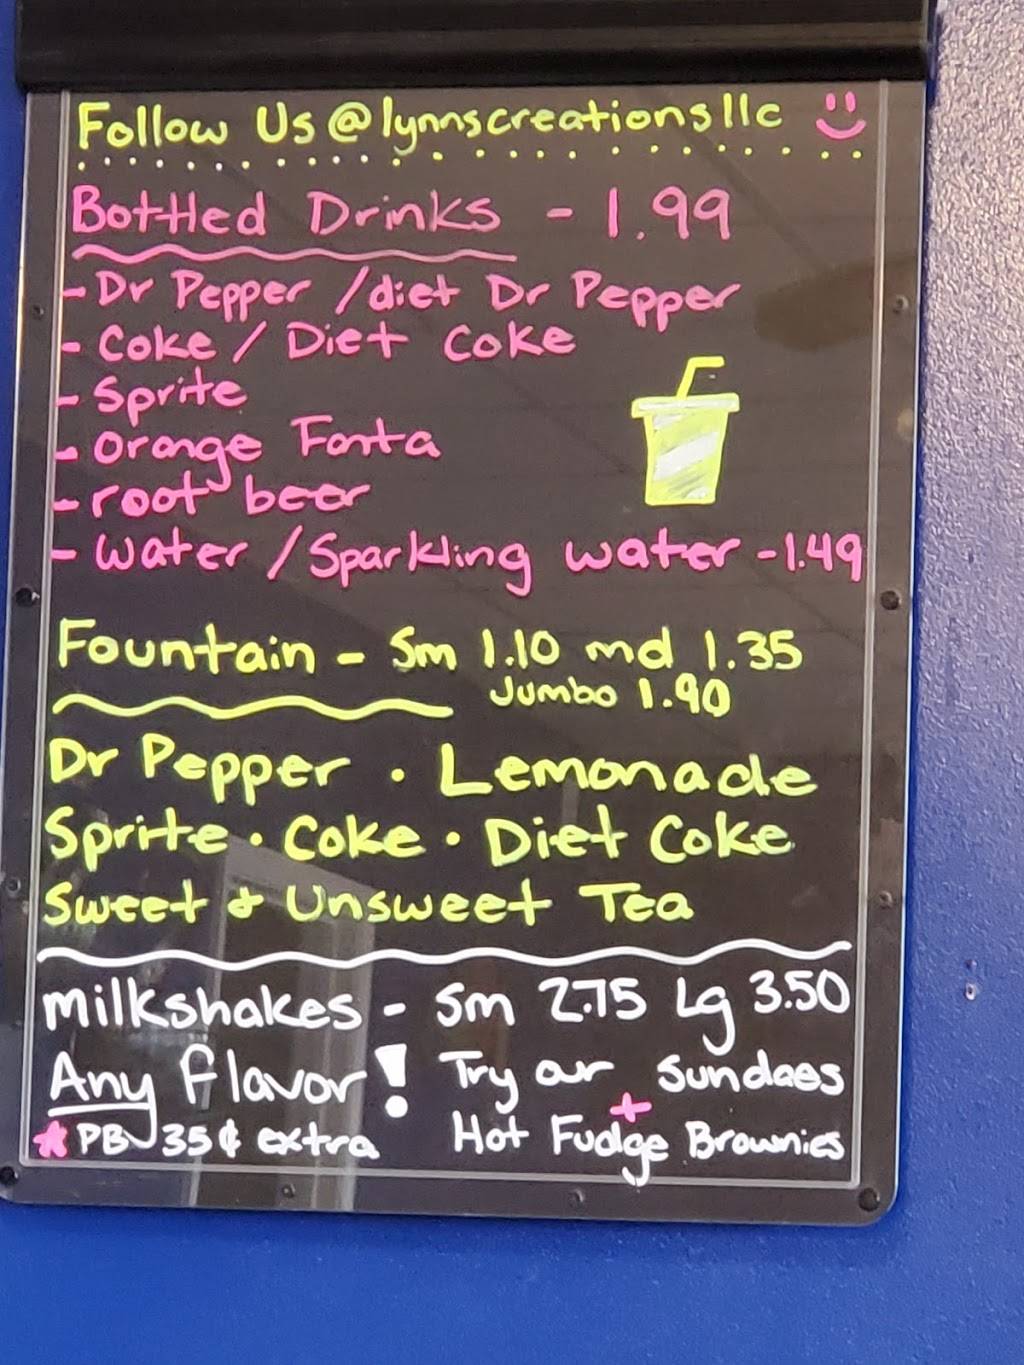 Follow Us @lynnscreationsllc
Bottled Drinks - 1.99
- Dr Pepper / diet Dr Pepper
- Coke / Diet Coke
- Sprite
- Orange Fanta
- root beer
- Water / Sparkling water - 1.49
Fountain - Sm 1.10 md 1.35
Jumbo 1.90
Dr Pepper · Lemonade
Sprite · Coke · Diet Coke
Sweet & Unsweet Tea
Milkshakes - Sm 2.75 Lg 3.50
Any flavor! Try our Sundaes
+
* PB 35¢ extra Hot Fudge Brownies